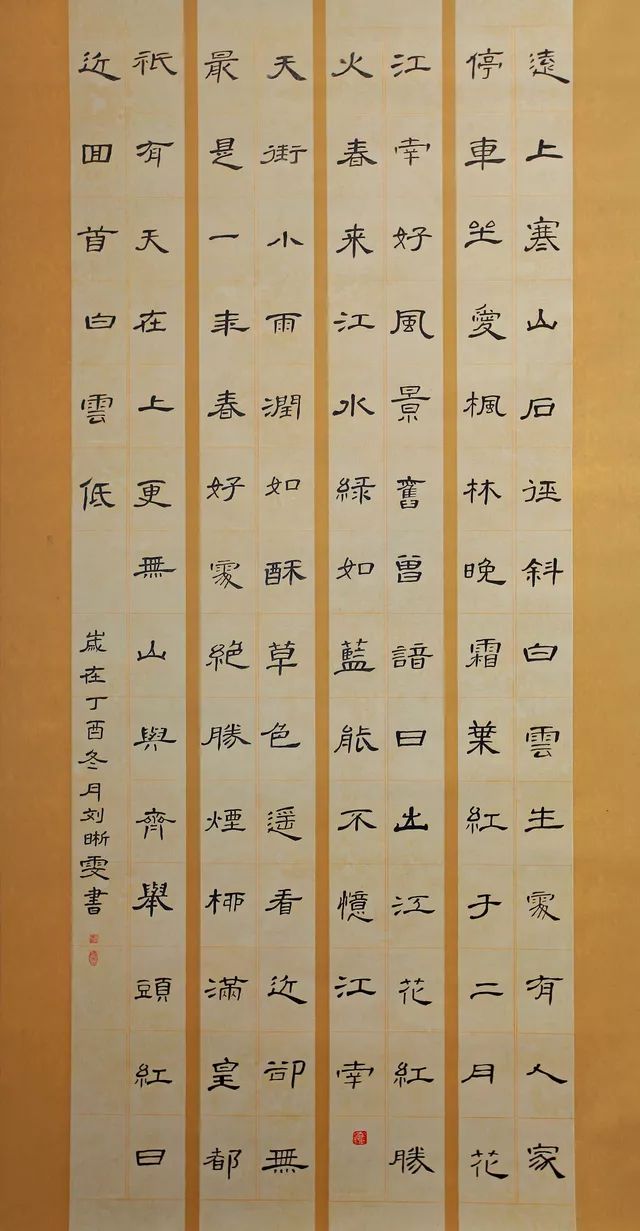 遠上寒山石徑斜白雲生處有人家
停車坐愛楓林晚霜葉紅于二月花
江南好風景舊曾諳日出江花紅勝
火春来江水綠如藍能不憶江南
天街小雨潤如酥草色遥看近卻無
最是一年春好處絕勝煙柳滿皇都
祇有天在上更無山與齊舉頭紅日
近回首白雲低
歲在丁酉冬月刘晰雯書